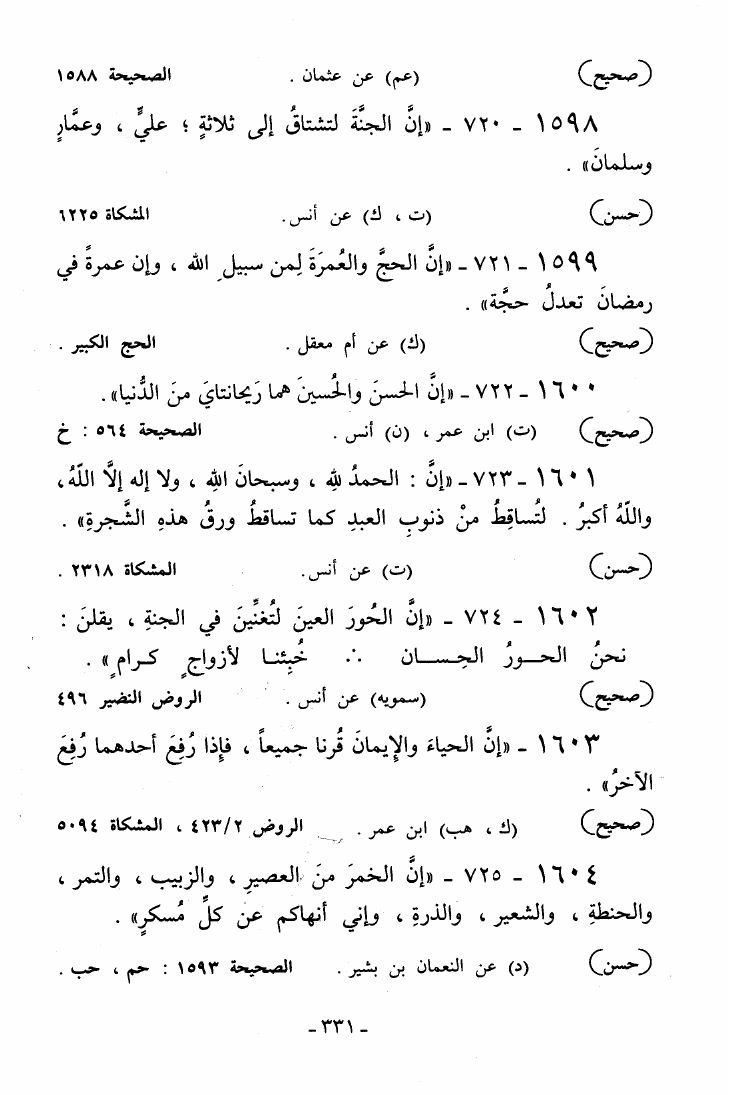 (صحيح) (عم) عن عثمان . الصحيحة ١٥٨٨
١٥٩٨ - ٧٢٠ - «إنَّ الجنَّةَ لتشتاقُ إلى ثلاثةٍ ؛ عليٍّ ، وعمَّارٍ
وسلمانَ» .
(حسن) (ت ، ك) عن أنس. المشكاة ٦٢٢٥
١٥٩٩ - ٧٢١ - «إنَّ الحجَّ والعُمرَةَ لِمن سبيلِ الله ، وإن عمرةً في
رمضانَ تعدلُ حجَّة» .
(صحيح) (ك) عن أم معقل . الحج الكبير .
١٦٠٠ - ٧٢٢ - «إنَّ الحسنَ والحُسينَ هما رَيحانتايَ منَ الدُّنيا» .
(صحيح) (ت) ابن عمر ، (ن) أنس . الصحيحة ٥٦٤ : خ
١٦٠١ - ٧٢٣ - «إنَّ : الحمدُ للهِ ، وسبحانَ اللهِ ، ولا إله إلَّا اللّهُ،
واللّهُ أكبرُ . لتُساقِطُ منْ ذنوبِ العبدِ كما تساقطُ ورقُ هذهِ الشَّجرةِ» .
(حسن) (ت) عن أنس. المشكاة ٢٣١٨ .
١٦٠٢ - ٧٢٤ - «إنَّ الحُورَ العينَ لتُغنِّينَ في الجنةِ ، يقلنَ :
نحنُ الحــورُ الحِســـان ∴ خُبِئنــا لأزواجٍ كــرامٍ» .
(صحيح) (سمويه) عن أنس . الروض النضير ٤٩٦
١٦٠٣ - «إنَّ الحياءَ والإِيمانَ قُرنا جميعاً ، فإذا رُفِعَ أحدهما رُفِعَ
الآخرُ» .
(صحيح) (ك ، هب) ابن عمر . الروض ٤٢٣/٢ ، المشكاة ٥٠٩٤
١٦٠٤ - ٧٢٥ - «إنَّ الخمرَ منَ العصيرِ ، والزبيب ، والتمر ،
والحنطةِ ، والشعير ، والذرةِ ، وإني أنهاكم عن كلِّ مُسكرٍ» .
(حسن) (د) عن النعمان بن بشير . الصحيحة ١٥٩٣ : حم ، حب .
- ٣٣١ -